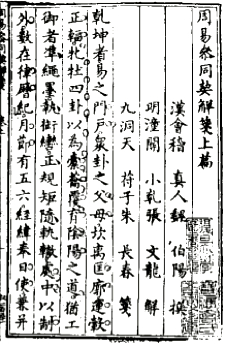 周易參同契解箋上篇
漢會稽 真人魏 伯陽 撰
明潼關 張 文龍 解
九洞天 符子朱 長春 箋
乾坤者易之門戶衆卦之父母坎離匡廓運轂
正軸牝牡四卦以為橐籥覆冐陰陽之道猶工
御者準繩墨執銜轡正規矩隨軌轍處中以制
外數在律曆紀月節有五六經緯奉日使兼并